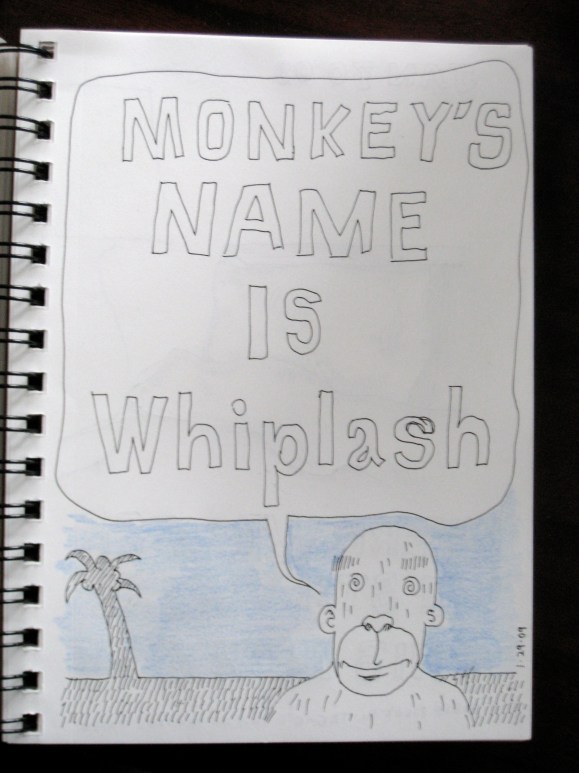 MONKEY'S
NAME
IS
Whiplash
1-29-09